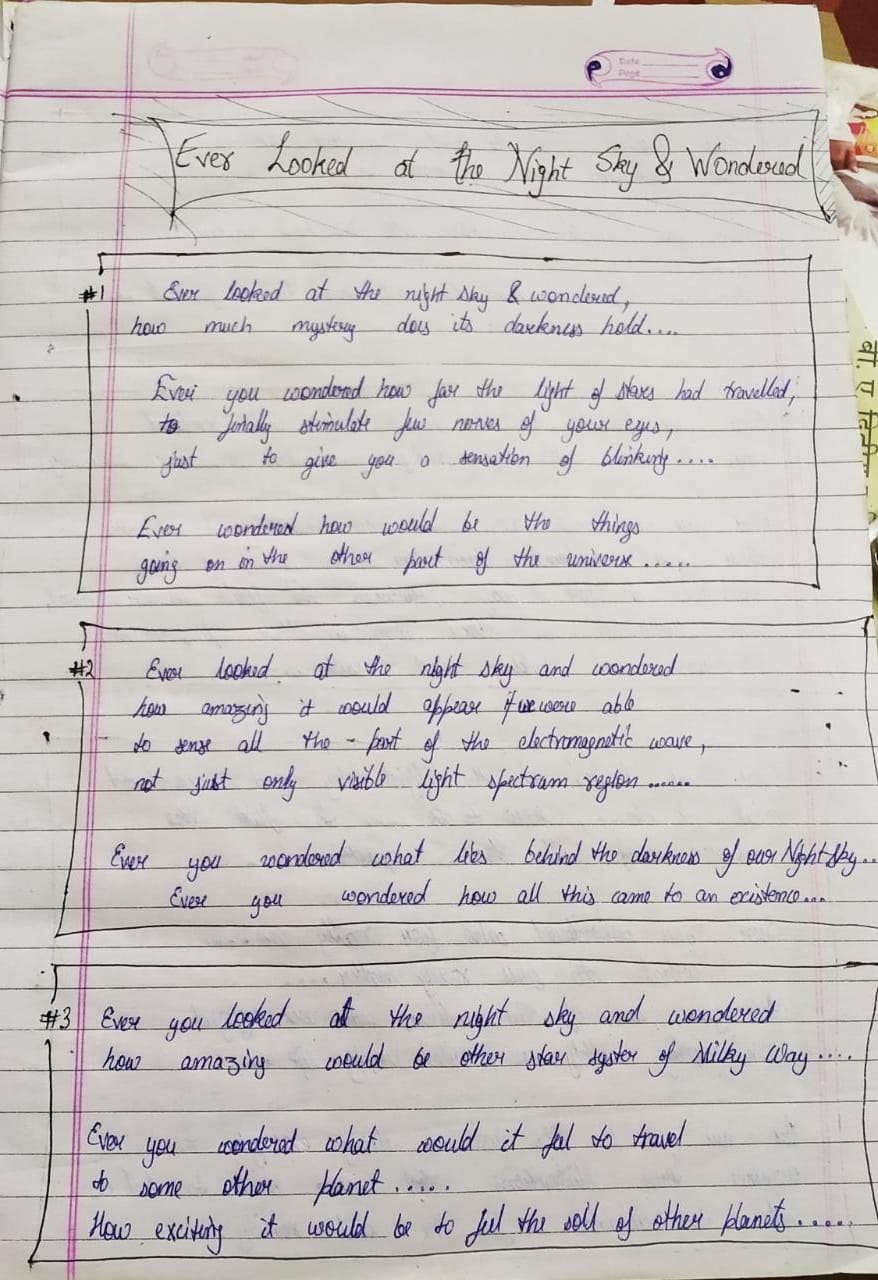 Date
Page
Ever Looked at the Night Sky & Wondered
#1 Ever looked at the night sky & wondered,
how much mystery does its darkness hold....
Ever you wondered how far the light of stars had travelled,
to finally stimulate few nerves of your eyes,
just to give you a sensation of blinking....
Ever wondered how would be the things
going on in the other part of the universe.....
#2 Ever looked at the night sky and wondered
how amazing it would appear if we were able
to sense all the - part of the electromagnetic wave,
not just only visible light spectram region......
Ever you wondered what lies behind the darkness of our Night Sky..
Ever you wondered how all this came to an existence...
#3 Ever you looked at the night sky and wondered
how amazing would be other star syster of Milky Way....
Ever you wondered what would it feel to travel
to some other planet.....
How exciting it would be to feel the soil of other planets.....